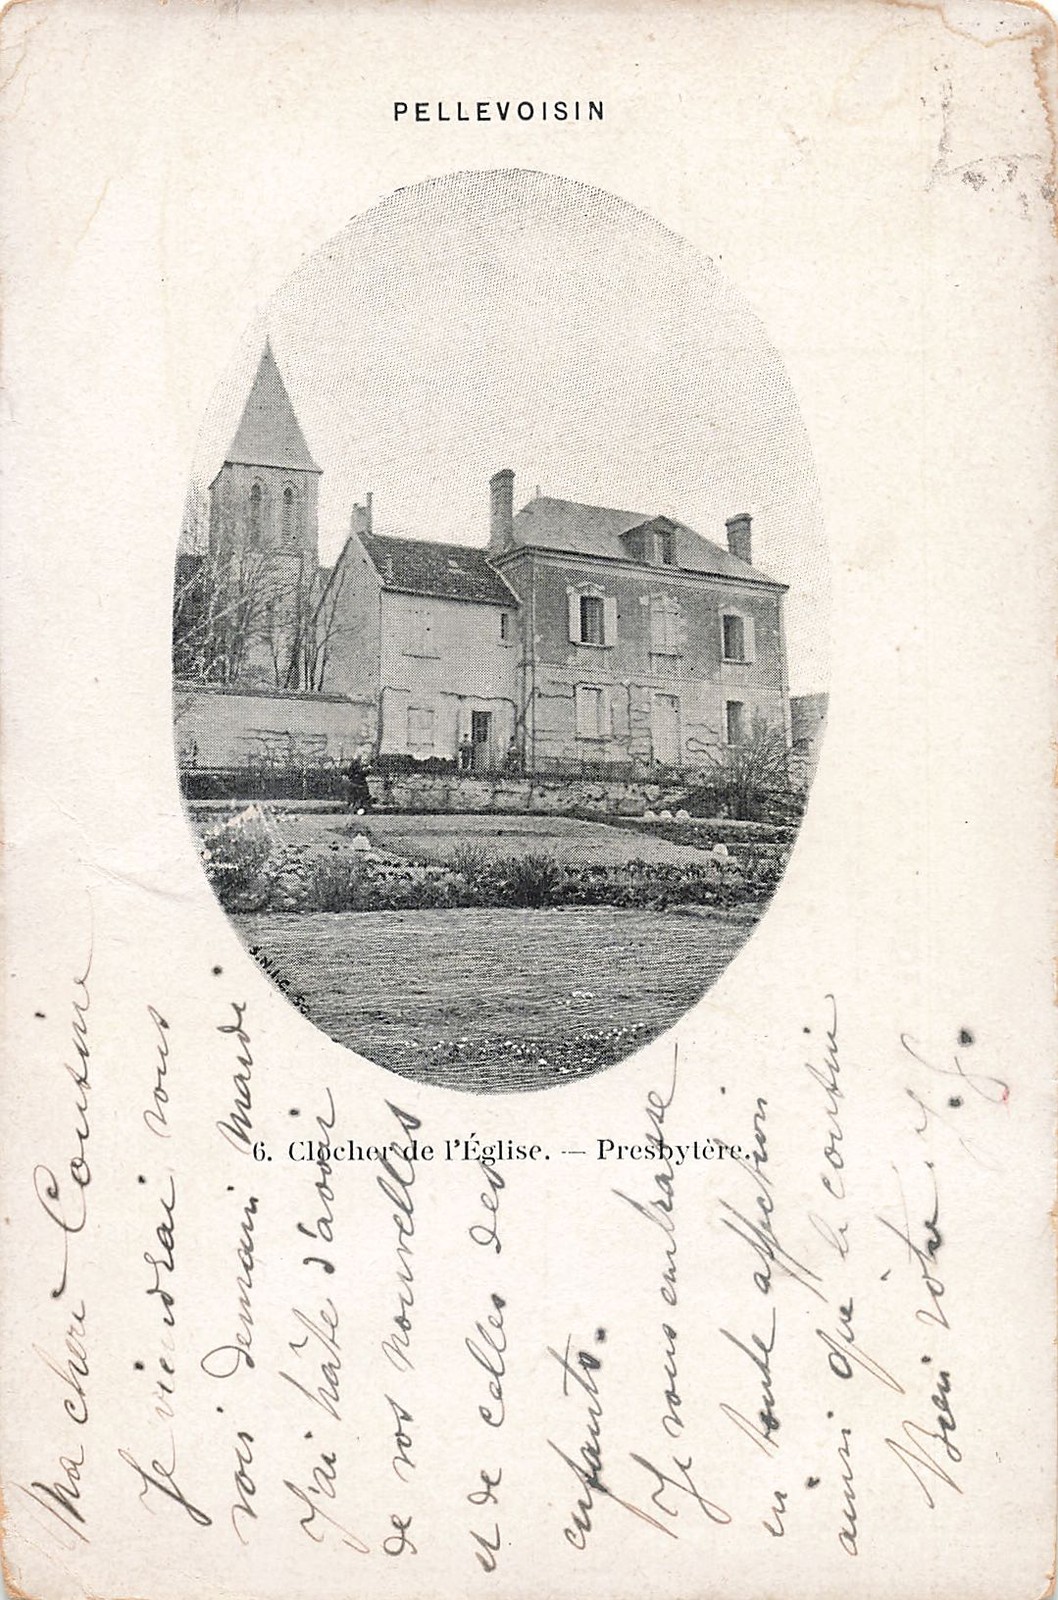 PELLEVOISIN
S.N.I.C. Sc
6. Clocher de l'Église. — Presbytère.
Ma chère Cousine
Je viendrai vous
voir demain Mardi.
J'ai hâte d'avoir
de vos nouvelles
et de celles des
enfants.
Je vous embrasse
en toute affection
ainsi que le cousin
Bien vôtre.